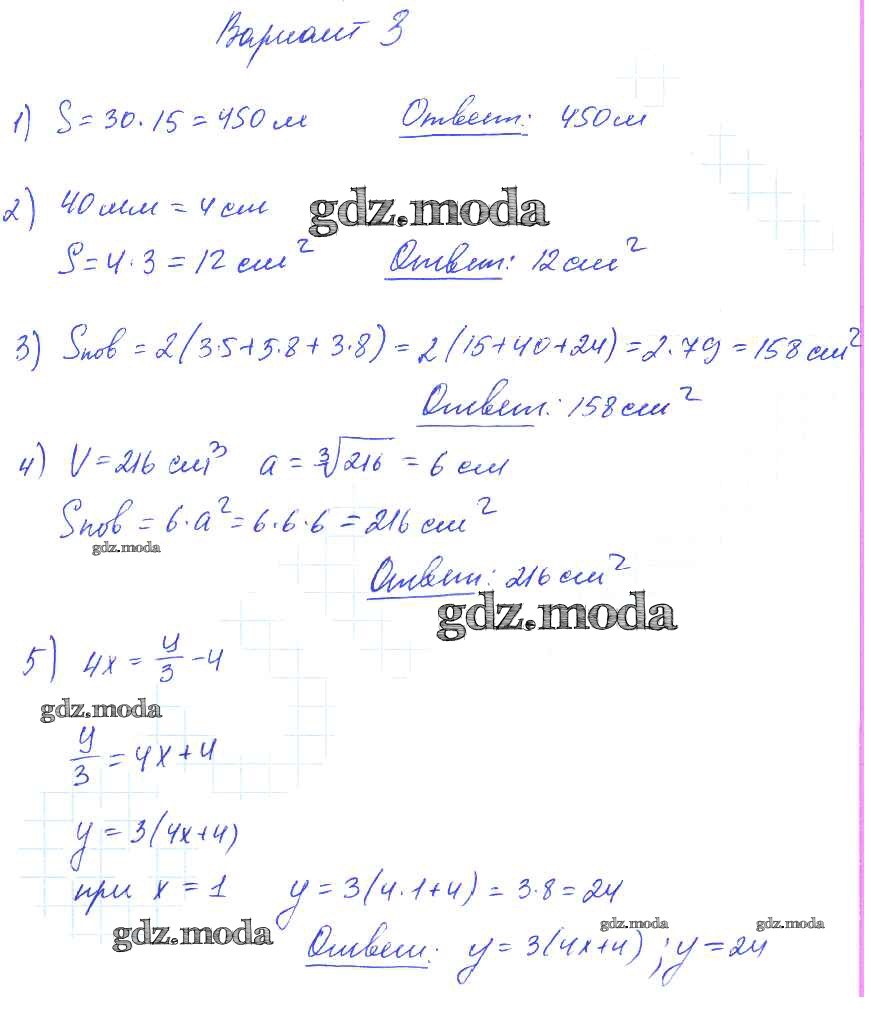 Вариант 3
1) S = 30 · 15 = 450 м Ответ: 450 м
2) 40 мм = 4 см
gdz.moda
S = 4 · 3 = 12 см² Ответ: 12 см²
3) Sпов = 2(3·5+5·8+3·8) = 2(15+40+24) = 2·79 = 158 см²
Ответ: 158 см²
4) V = 216 см³ a = ∛216 = 6 см
Sпов = 6·a² = 6·6·6 = 216 см²
gdz.moda
Ответ: 216 см²
gdz.moda
5) 4x = y/3 - 4
gdz.moda
y/3 = 4x + 4
y = 3(4x+4)
при x = 1 y = 3(4·1+4) = 3·8 = 24
gdz.moda gdz.moda gdz.moda
Ответ: y = 3(4x+4); y = 24